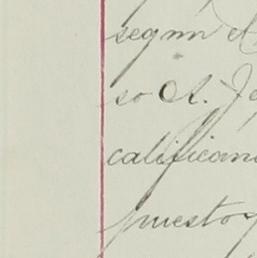 segun el
so A. Je
calificand
puestos